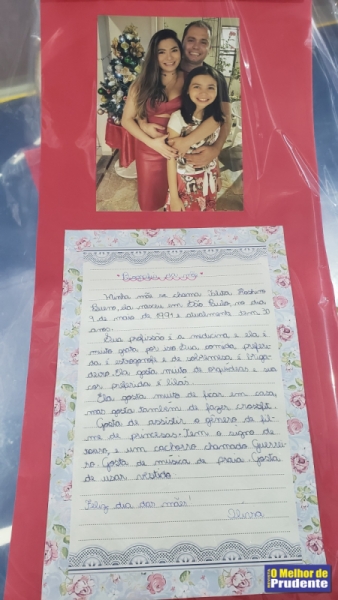 Minha mãe se chama
Bueno, ela nasceu em São Paulo, no dia
de maio de 1991 e atualmente tem 30
anos.
Sua profissão é a medicina e ela é
muito grata por isso. Sua comida preferi-
da é strogonoff e de sobremesa é briga-
deiro. Ela gosta muito de orquídeas e sua
cor preferida é lilás.
Ela gosta muito de ficar em casa,
mas gosta também de fazer crossfit.
Gosta de assistir o gênero de fil-
me de princesas. Tem o signo de
touro, e um cachorro chamado Guerrei-
ro. Gosta de música de praia. Gosta
de usar vestido.
Feliz dia das mães!
O Melhor de
Prudente